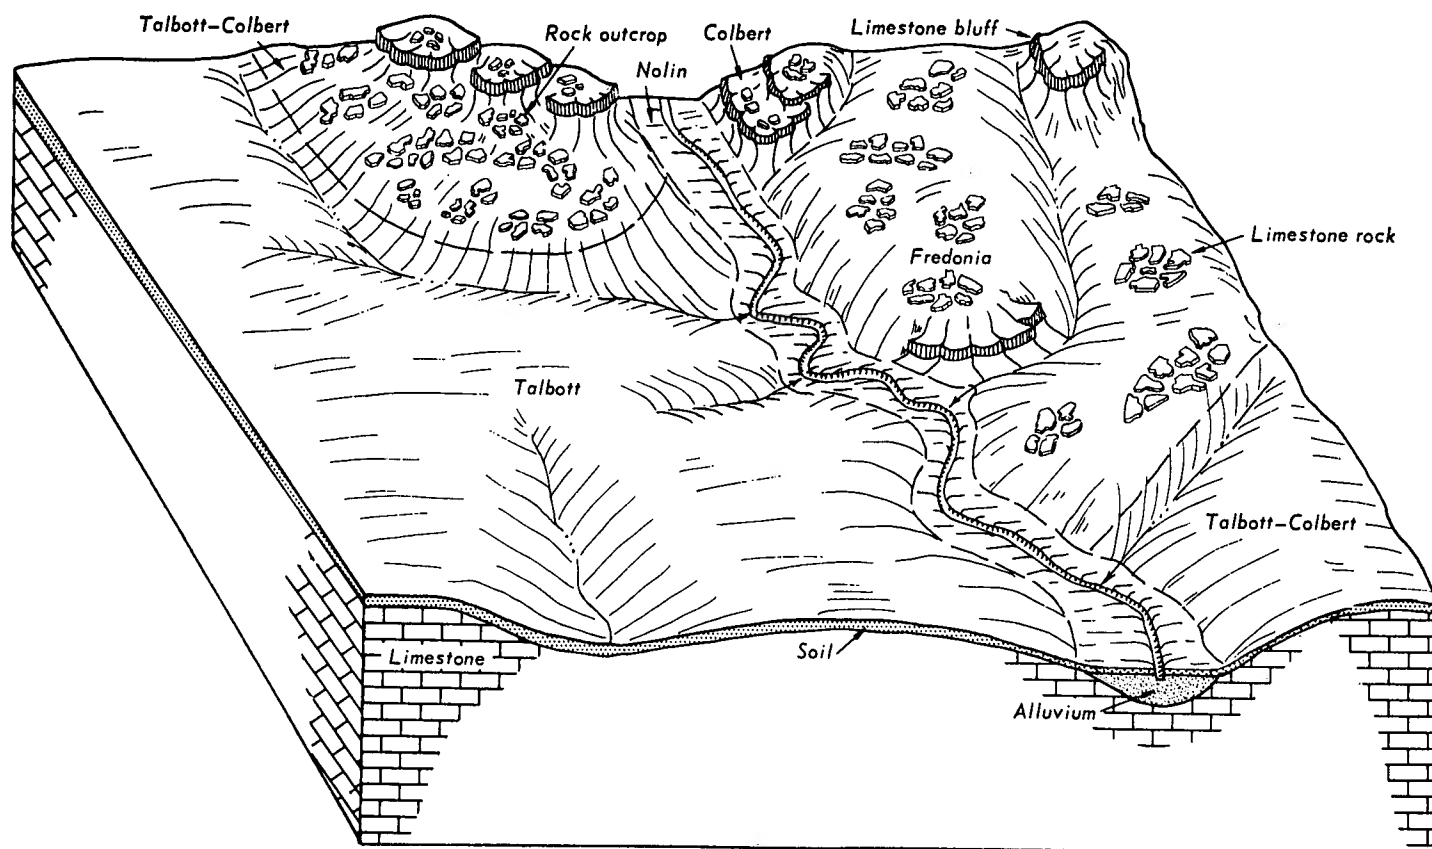 Talbott-Colbert
Rock outcrop
Nolin
Colbert
Limestone bluff
Limestone rock
Fredonia
Talbott
Talbott-Colbert
Limestone
Soil
Alluvium